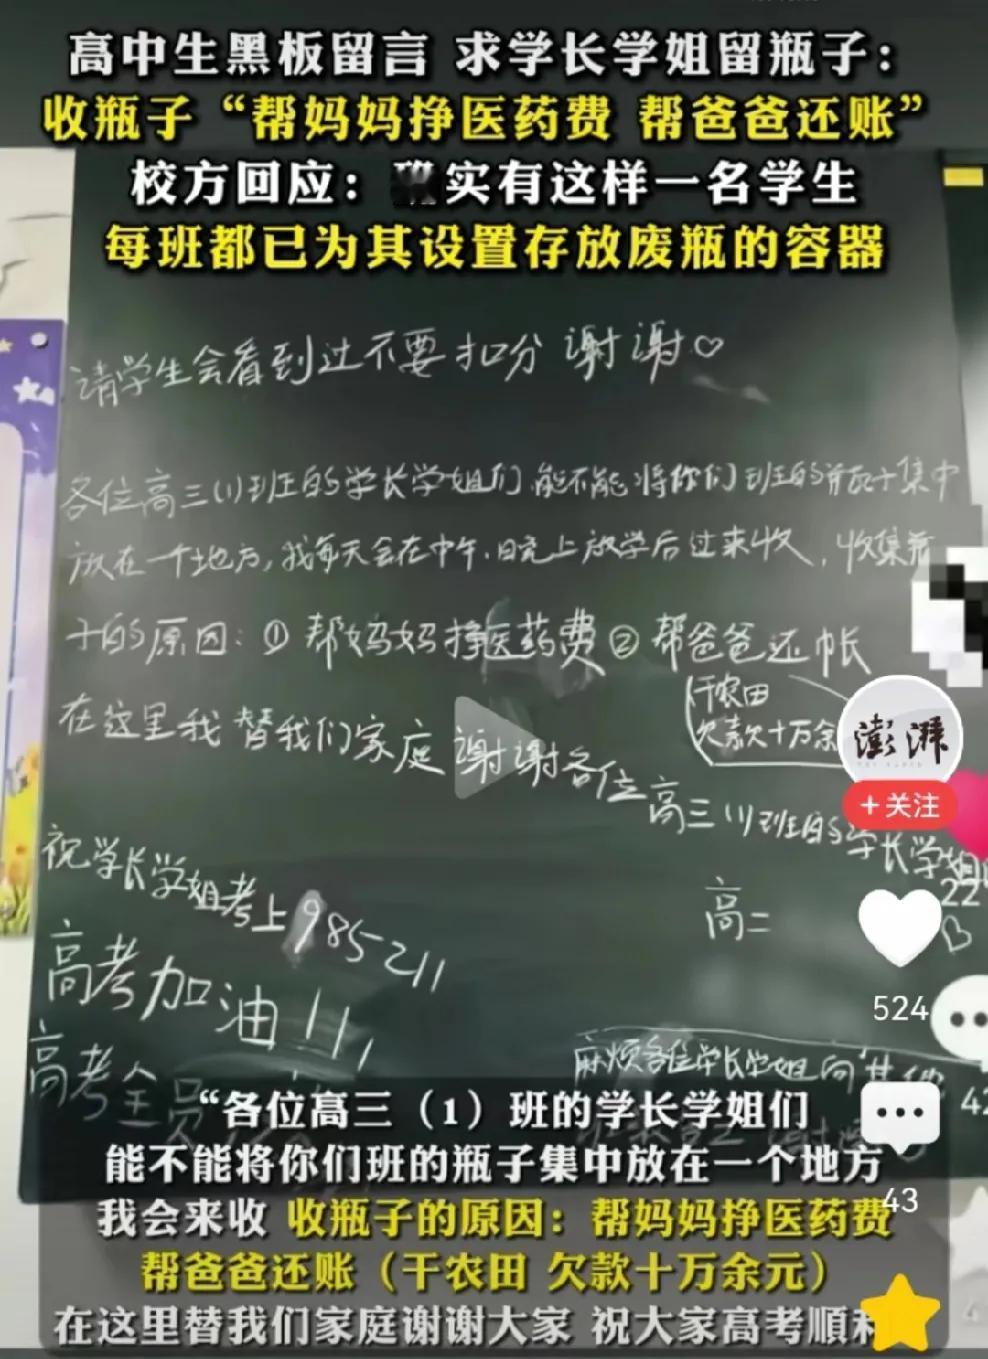 高中生黑板留言 求学长学姐留瓶子：
收瓶子“帮妈妈挣医药费 帮爸爸还账”
校方回应： 实有这样一名学生
每班都已为其设置存放废瓶的容器
请学生会看到过不要扣分 谢谢♡
各位高三(1)班的学长学姐们,能不能将你们班的瓶子集中
放在一个地方,我每天会在中午.晚上放学后过来收,收集瓶
子的原因:①帮妈妈挣医药费②帮爸爸还帐
干农田
欠款十万余
在这里我替我们家庭谢谢各位高三(1)班的学长学姐
高二
祝学长学姐考上985 211
高考加油!!!
高考全员
麻烦各位学长学姐向其他
澎湃
+关注
22
524
43
“各位高三（1）班的学长学姐们
能不能将你们班的瓶子集中放在一个地方
我会来收 收瓶子的原因：帮妈妈挣医药费
帮爸爸还账（干农田 欠款十万余元）
在这里替我们家庭谢谢大家 祝大家高考顺利